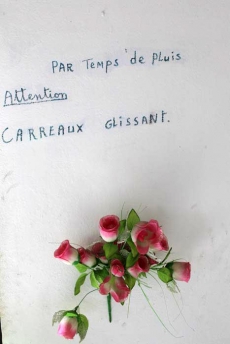 PAR Temps de Pluis
Attention
CARREAUX GLISSANT.